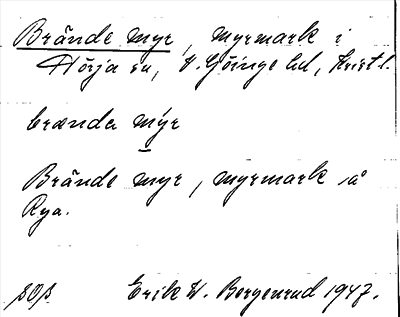 Brände myr, myrmark i
Hörja sn, V. Göinge hd, Krist l.
brænda mýr
Brände myr, myrmark på
Rya.
Erik W. Bergenrud 1947.